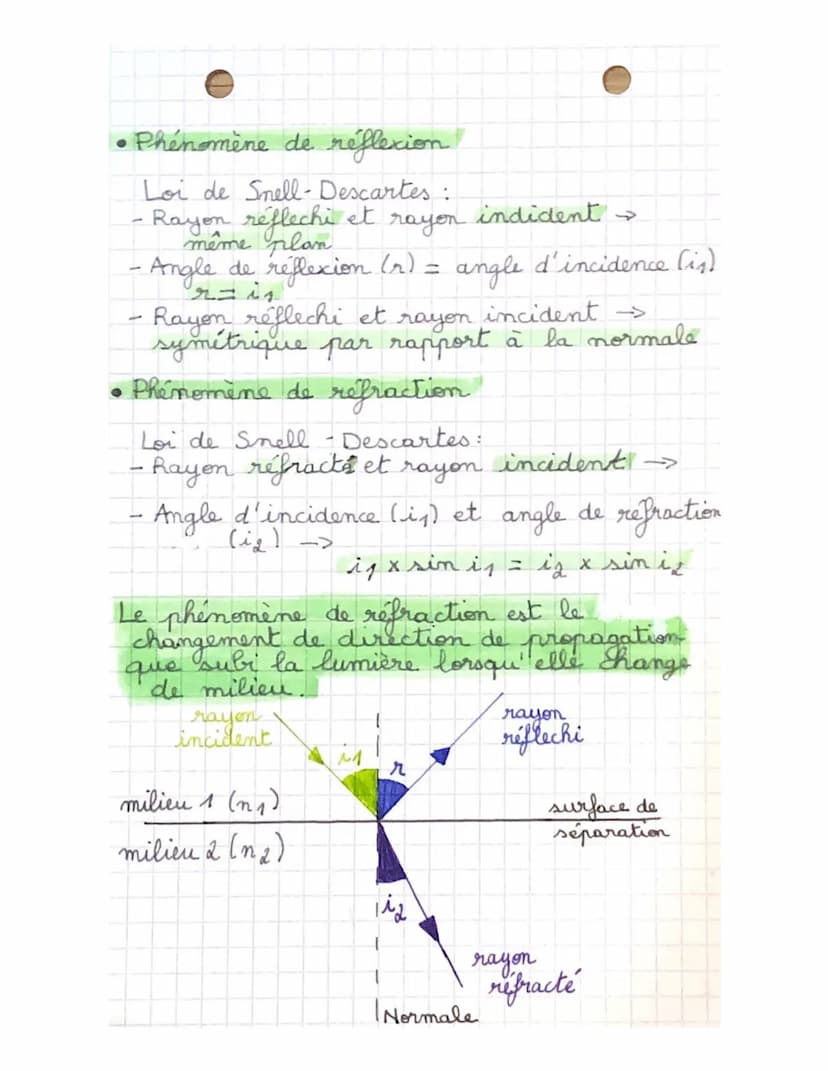 • Phénomène de réflexion
Loi de Snell-Descartes :
- Rayon réflechi et rayon indident →
même plan
- Angle de réflexion (r) = angle d'incidence (i1)
r = i1
- Rayon réflechi et rayon incident →
symétrique par rapport à la normale
• Phénomène de réfraction
Loi de Snell - Descartes :
- Rayon réfracté et rayon incident →
- Angle d'incidence (i1) et angle de refraction
(i2) →
i1 x sin i1 = i2 x sin i2
Le phénomène de réfraction est le
changement de direction de propagation
que subi la lumière lorsqu'elle change
de milieu.
rayon
incident
i1
r
rayon
réflechi
milieu 1 (n1)
surface de
séparation
milieu 2 (n2)
i2
rayon
réfracté
Normale